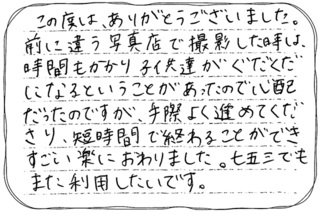 この度は、ありがとうございました。
前に違う写真店で撮影した時は、
時間もかかり子供達がぐだぐだ
になるということがあったので心配
だったのですが、手際よく進めてくだ
さり、短時間で終わることができ
すごい楽におわりました。七五三でも
また利用したいです。